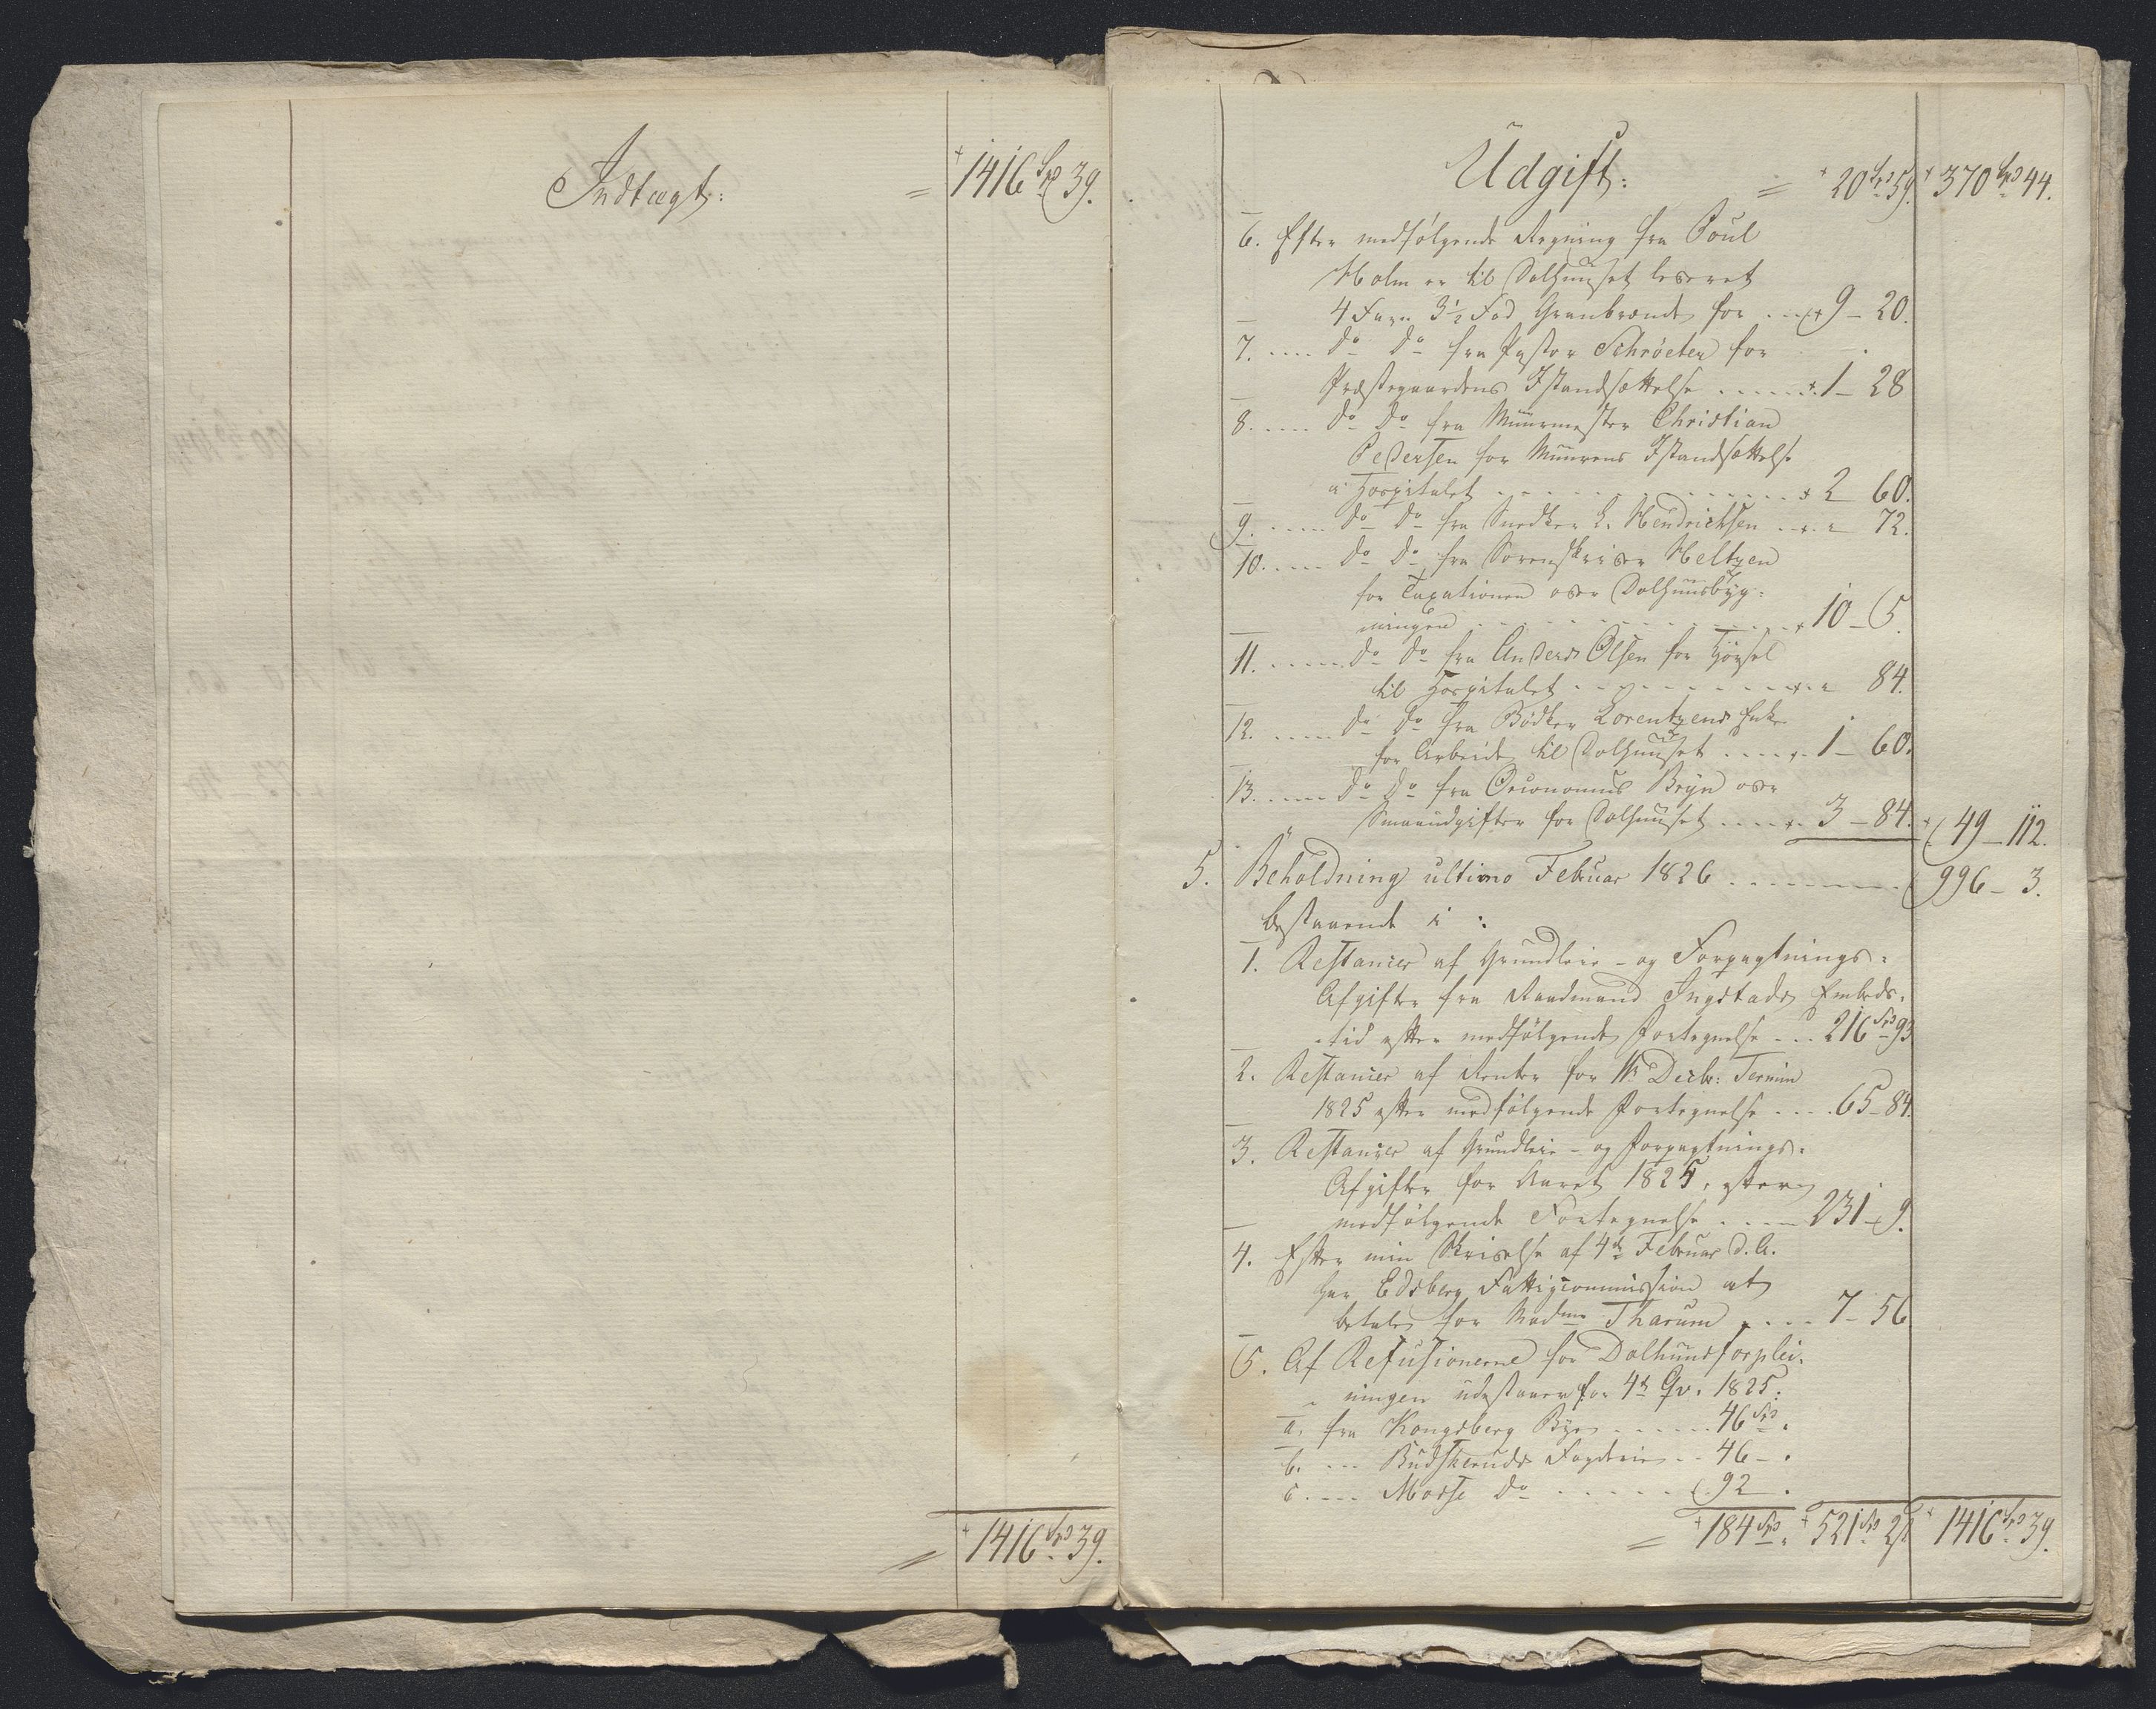 Indtægt: = 1416 Spd 39.
= 1416 Spd 39.
Udgift: = 20 Spd 59. 370 Spd 44.
6. Efter medfølgende Regning fra Poul
Holm er til Dolhuuset leveret
4 Favn 3½ Fod Granbrænde for 9 - 20.
7. do do fra Pastor Schröeter for
Præstegaardens Istandsættelse 1 - 28
8. do do fra Muurmester Christian
Pedersen for Muurens Istandsættelse
i Hospitalet 2 60.
9. do do fra Snedker L. Hendrichsen " 72.
10. do do fra Sorenskriver Heltzen
for Taxationen over Dolhuusbÿg-
ningen 10 - 5.
11. do do fra Anders Olsen for Kjørsel
til Hospitalet " 84.
12. do do fra Bødker Lorentzens Enke
for Arbeide til Dolhuuset 1 - 60.
13. do do fra Oeconomus Brÿn over
Smaaudgifter for Dolhuuset 3 - 84. 49 - 112.
5. Beholdning ultimo Februar 1826 996 - 3.
bestaaende i :
1. Restancer af Grundleie- og Forpagtnings-
Afgifter fra Raadmand Ingstads Embeds-
tid efter medfølgende Fortegnelse 216 Spd 93
2. Restancer af Renter for 11te Decbr: Termin
1825 efter medfølgende Fortegnelse 65 - 84.
3. Restancer af Grundleie- og Forpagtnings-
Afgifter for Aaret 1825, efter
medfølgende Fortegnelse 231 - 9.
4. Efter min Skrivelse af 4de Februar d. A.
har Edsberg Fattigcommission at
betale for Madme Tharum 7 - 56
5. Af Refusionerne for Dolhuusforplei-
ningen udestaaer for 4de Qv. 1825:
a. fra Kongsberg Bÿe 46 Spd "
b. Budskeruds Fogderie 46 - "
c. Mosse do 92 "
= 184 Spd " 521 Spd 2 1416 Spd 39.